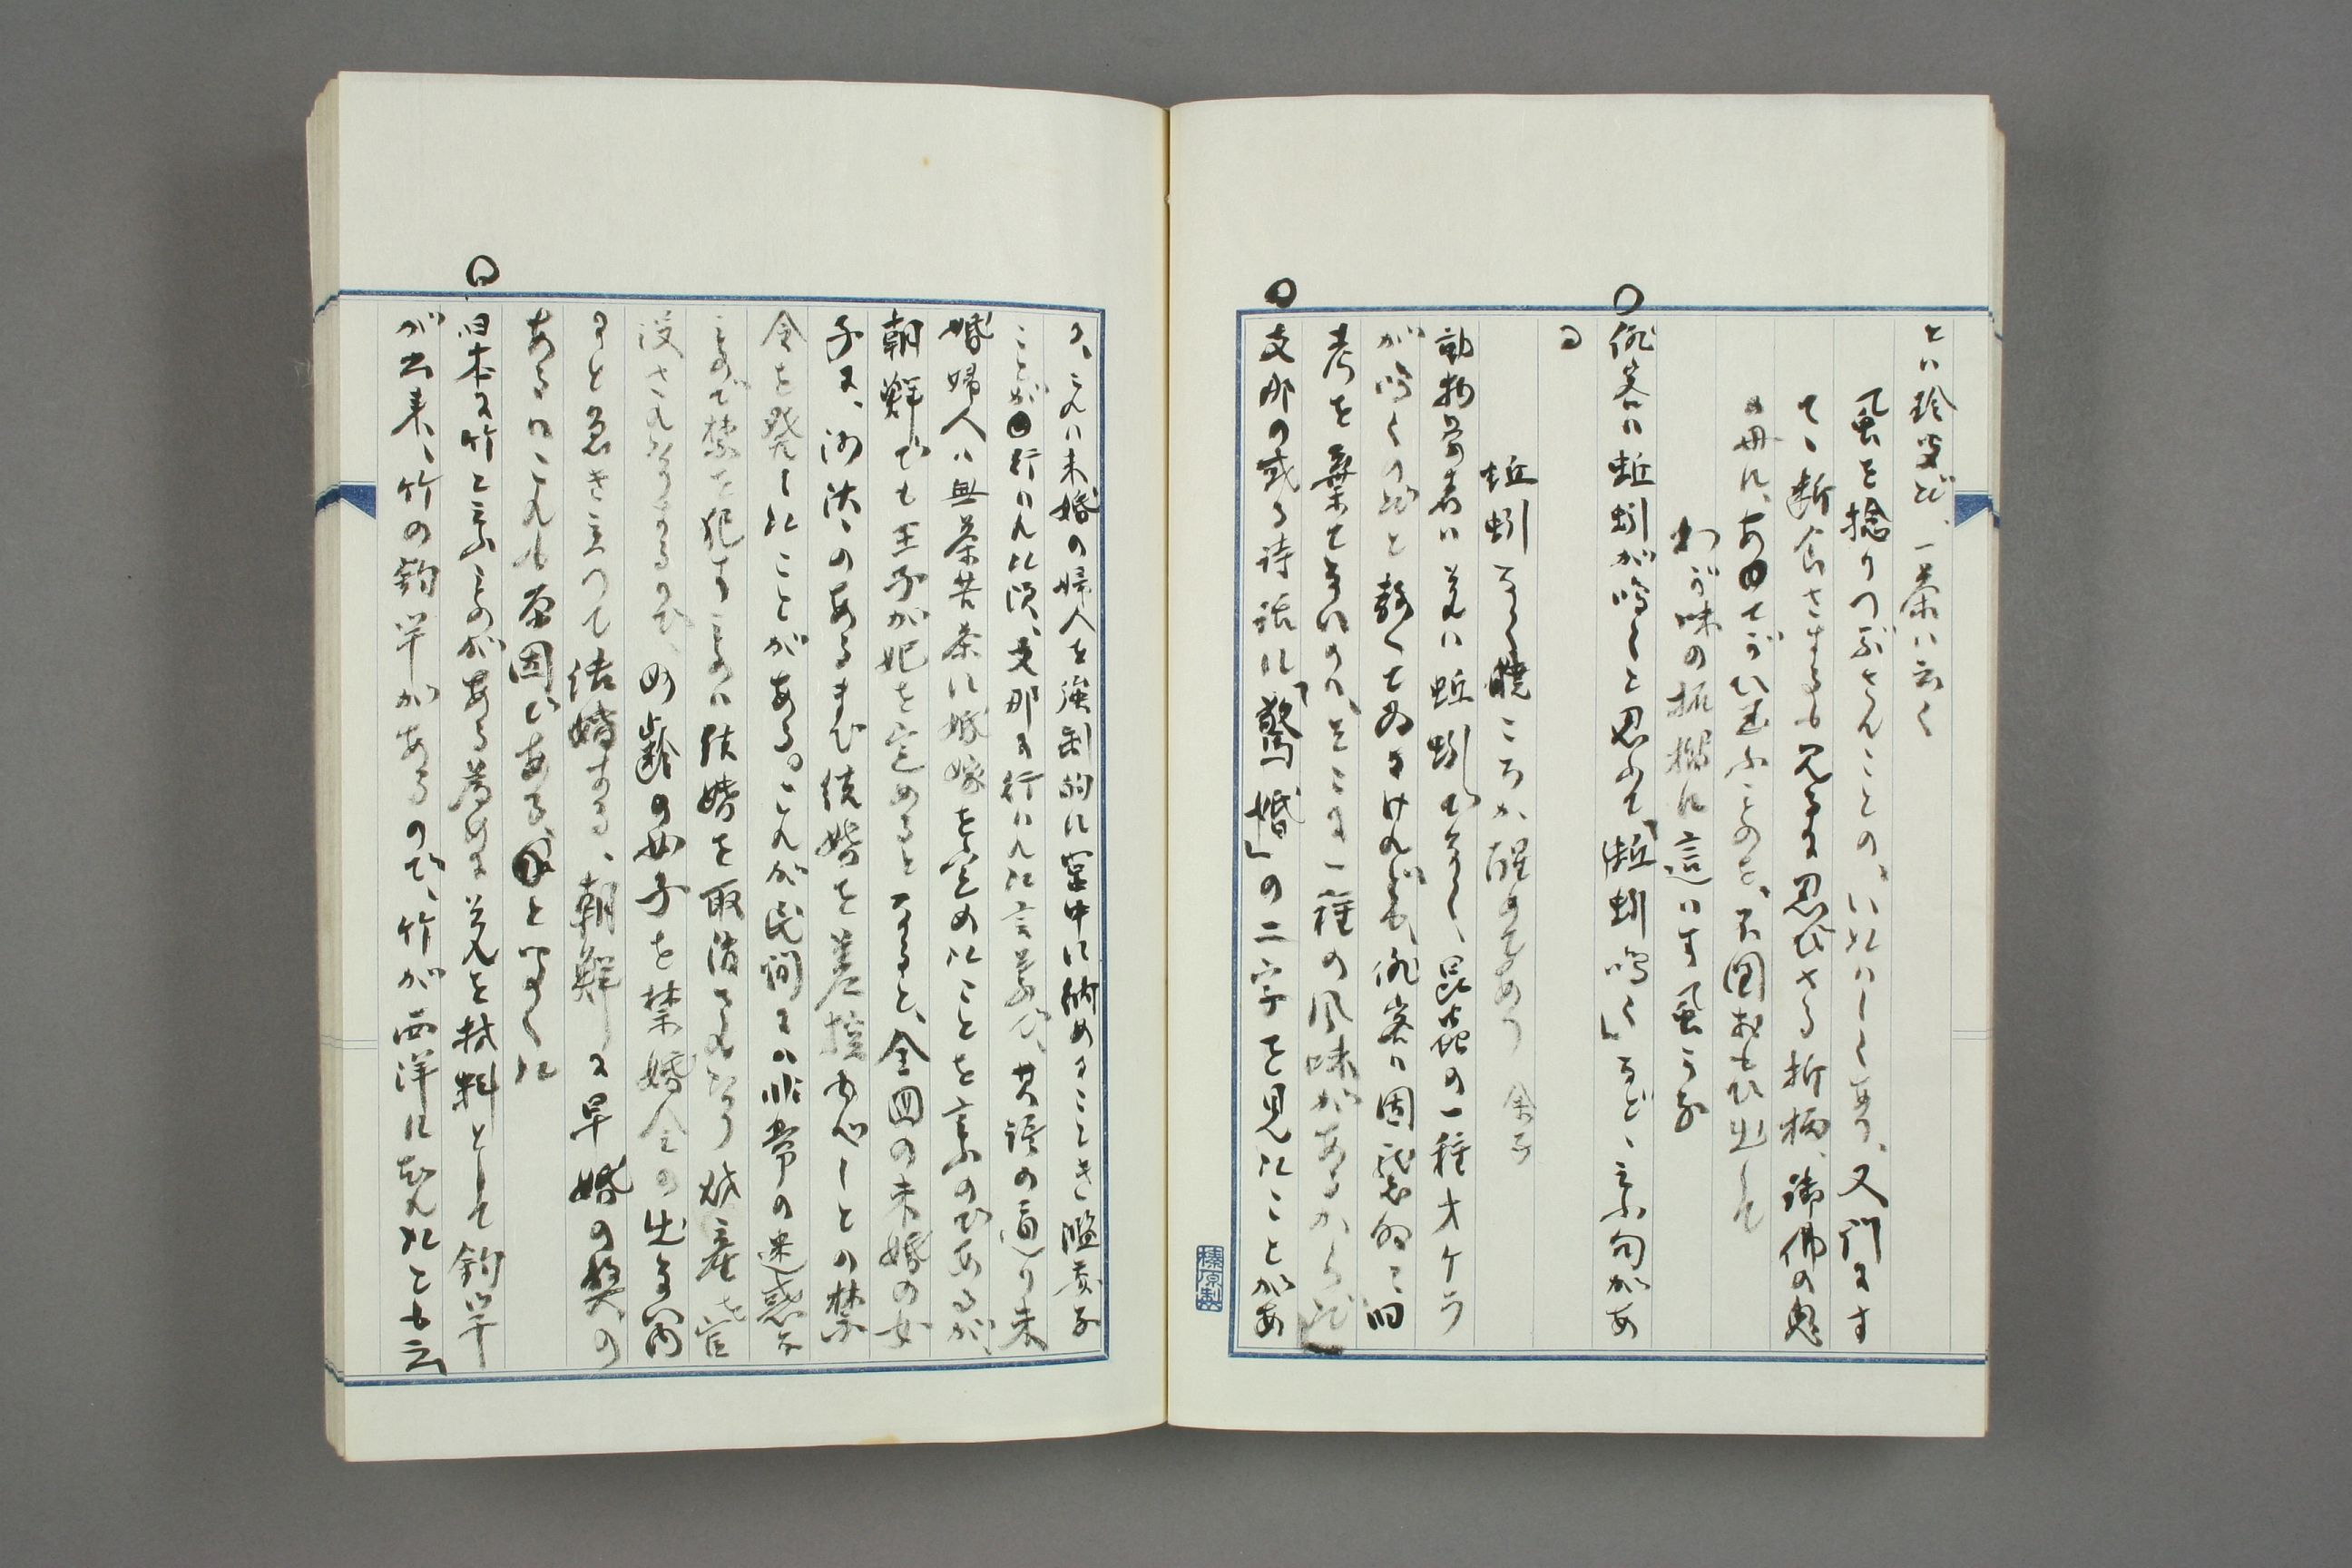 とハ珍重ど、一茶ハ云く
風を捻りつぶさんことの、いたはしくあり、又門にす
て、断食さするも見るに忍びざる折柄、御佛の鬼
の母に、あてがひ玉ふことのを、不図おもひ出して
わが味の柘榴に這ハす風うな
〇俳客ハ蚯蚓が鳴くと思ふて、「蚯蚓鳴く」など、云ふ句があ
る
蚯蚓なく暁ころか醒めてあり
動物学者ハ、夫ハ蚯蚓でなく、昆蟲の一種オケラ
が鳴くのだと教へてゐるけれども、俳客ハ因襲的に旧
考を棄てないのハ、そこに一種の風味があるからだ
〇支那の或る詩話に「驚婚」の二字を見たことがあ
る、これハ未婚の婦人を強制的に宮中に納めること
ことが行ハれた頃、支那に行ハれた言葉で、其語の通り未
婚婦人ハ無茶苦茶に婚嫁を定めたことを云ふのであるが、
朝鮮でも王子が妃を定めるとなると、全国の未婚の女
子に、沙汰のあるまで結婚を差控ゆべしとの禁
令を発したことがある。これが民間にハ非常の迷惑な
ので禁を犯すものハ結婚を取消され、財産を官
没されるのである、妙齢の女子を禁婚令の出ない内
にと急き立つて結婚する、朝鮮に早婚の弊の
あるハこれも原因である、と聞いた
〇日本に竹と云ふものがある為めに夫を材料として釣竿
が出来、竹の釣竿があるので、竹が西洋に売れたとも云
榛原製